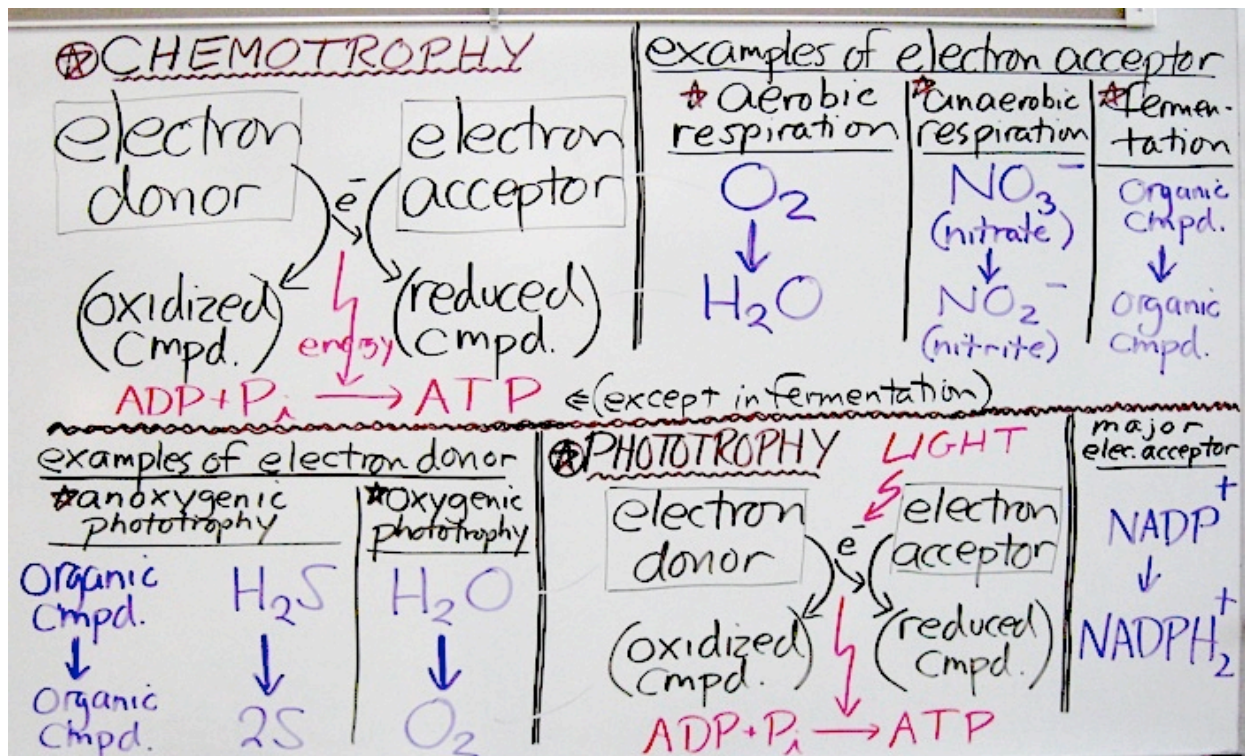 CHEMOTROPHY
electron
donor
e⁻
electron
acceptor
(oxidized
Cmpd.)
energy
(reduced
Cmpd.)
ADP+Pi → ATP
⇐(except in fermentation)
examples of electron acceptor
☆ aerobic
respiration
O₂
↓
H₂O
☆ anaerobic
respiration
NO₃⁻
(nitrate)
↓
NO₂⁻
(nitrite)
☆ fermen-
tation
Organic
Cmpd.
↓
Organic
Cmpd.
examples of electron donor
☆ anoxygenic
phototrophy
Organic
Cmpd.
↓
Organic
Cmpd.
H₂S
↓
2S
☆ oxygenic
phototrophy
H₂O
↓
O₂
PHOTOTROPHY
LIGHT
electron
donor
e⁻
electron
acceptor
(oxidized
Cmpd.)
(reduced
Cmpd.)
ADP+Pi → ATP
major
elec. acceptor
NADP⁺
↓
NADPH₂⁺